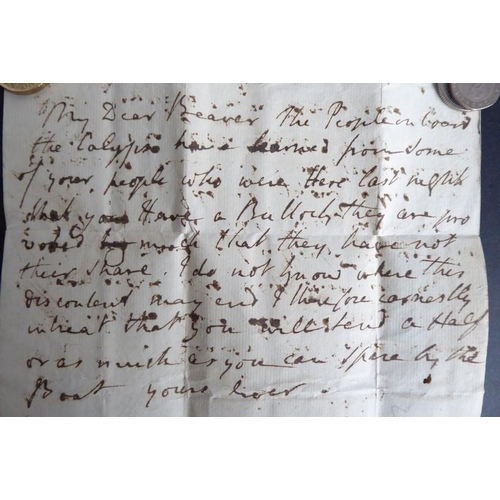 My Dear Beaver the People on board
the Calypso have learned from some
of your people who were there last night
that you Have a Bullock they are pro
voked by much that they have not
their share. I do not know where this
discontent may end I therefore earnestly
intreat that you will send a Half
or as much as you can spare by the
Boat yours ever